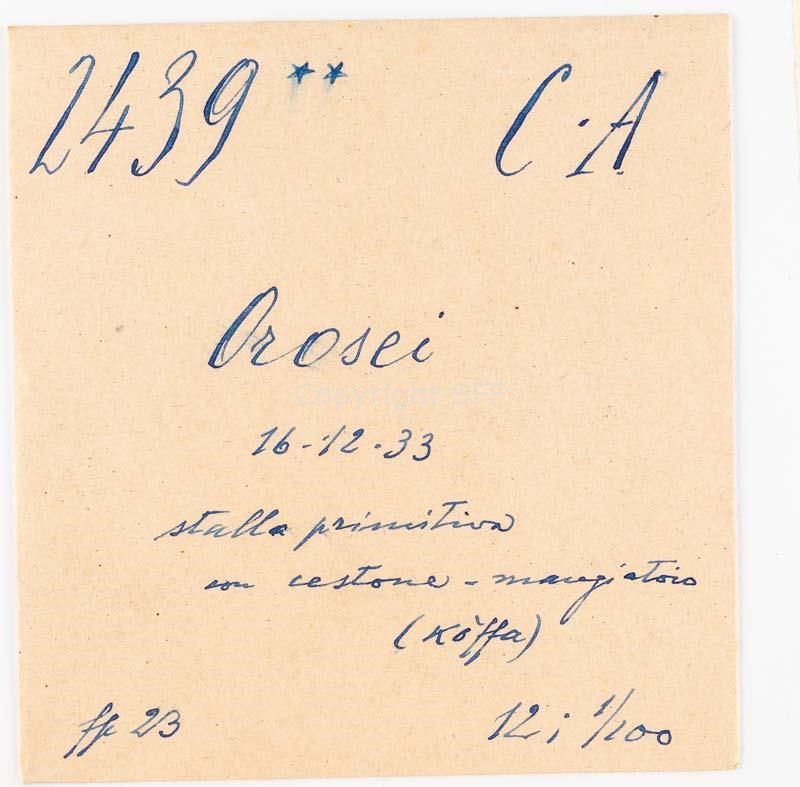 2439 ** C.A
Orosei
Copyright SFP
16-12.33
stalla primitiva
con cestone - mangiatoio
(kŏffa)
ff 23 12; 1/100